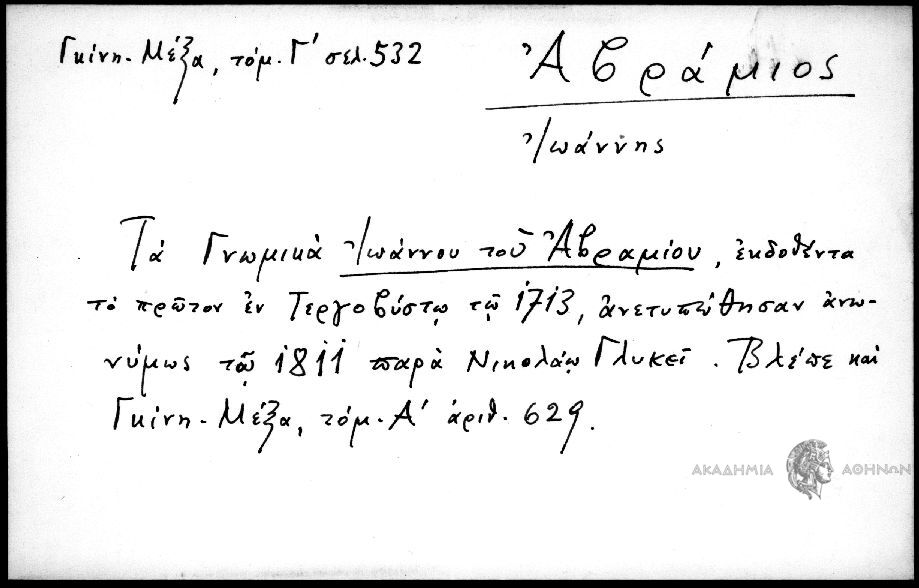 Γκίνη - Μέξα, τόμ. Γ' σελ. 532
Ἀβράμιος
Ἰωάννης
Τὰ Γνωμικὰ Ἰωάννου τοῦ Ἀβραμίου, ἐκδοθέντα
τὸ πρῶτον ἐν Τεργοβύστῳ τῷ 1713, ἀνετυπώθησαν ἀνω-
νύμως τῷ 1811 παρὰ Νικολάῳ Γλυκεῖ. Βλέπε καὶ
Γκίνη - Μέξα, τόμ. Α' ἀριθ. 629.
ΑΚΑΔΗΜΙΑ ΑΘΗΝΩΝ